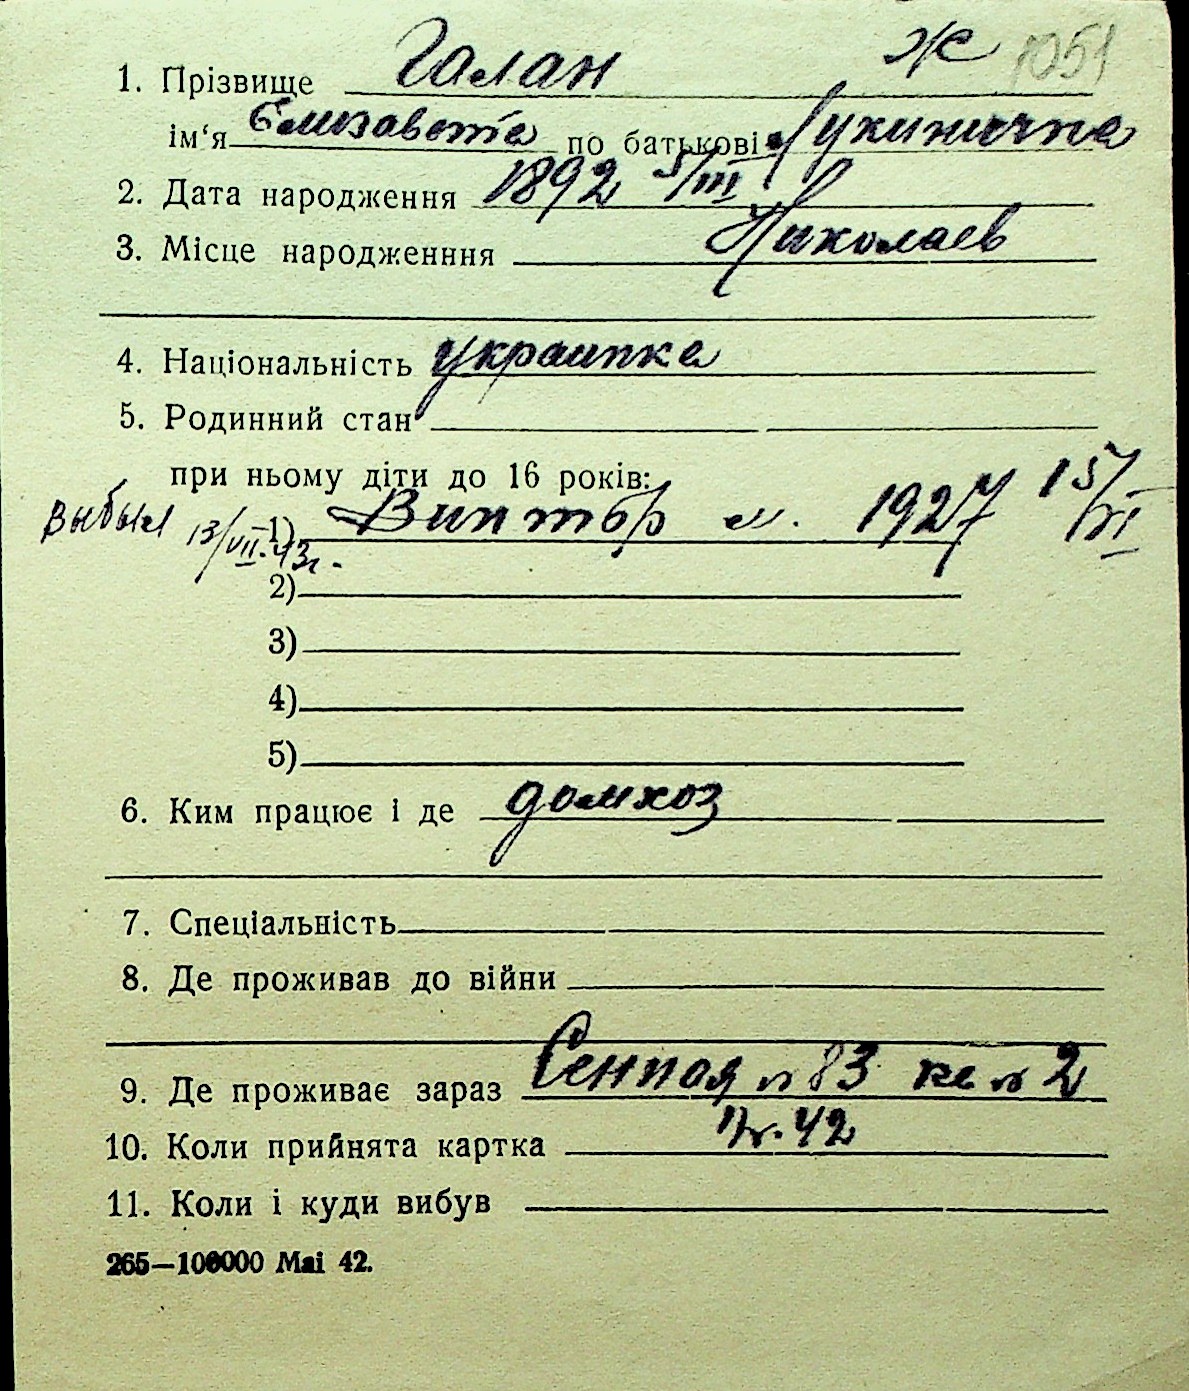 Ж 1051
1. Прізвище Галан
ім‘я Єлизавета по батькові Лукинична
2. Дата народження 1892 5/III
3. Місце народженння Николаев
4. Національність украинка
5. Родинний стан
при ньому діти до 16 років:
выбыл 13/VII-43г. 1) Виктор м. 1927 15/VI
2)
3)
4)
5)
6. Ким працює і де домхоз
7. Спеціальність
8. Де проживав до війни
9. Де проживає зараз Сенная № 83 кв № 2
10. Коли прийнята картка 42
11. Коли і куди вибув
265—100000 Mai 42.